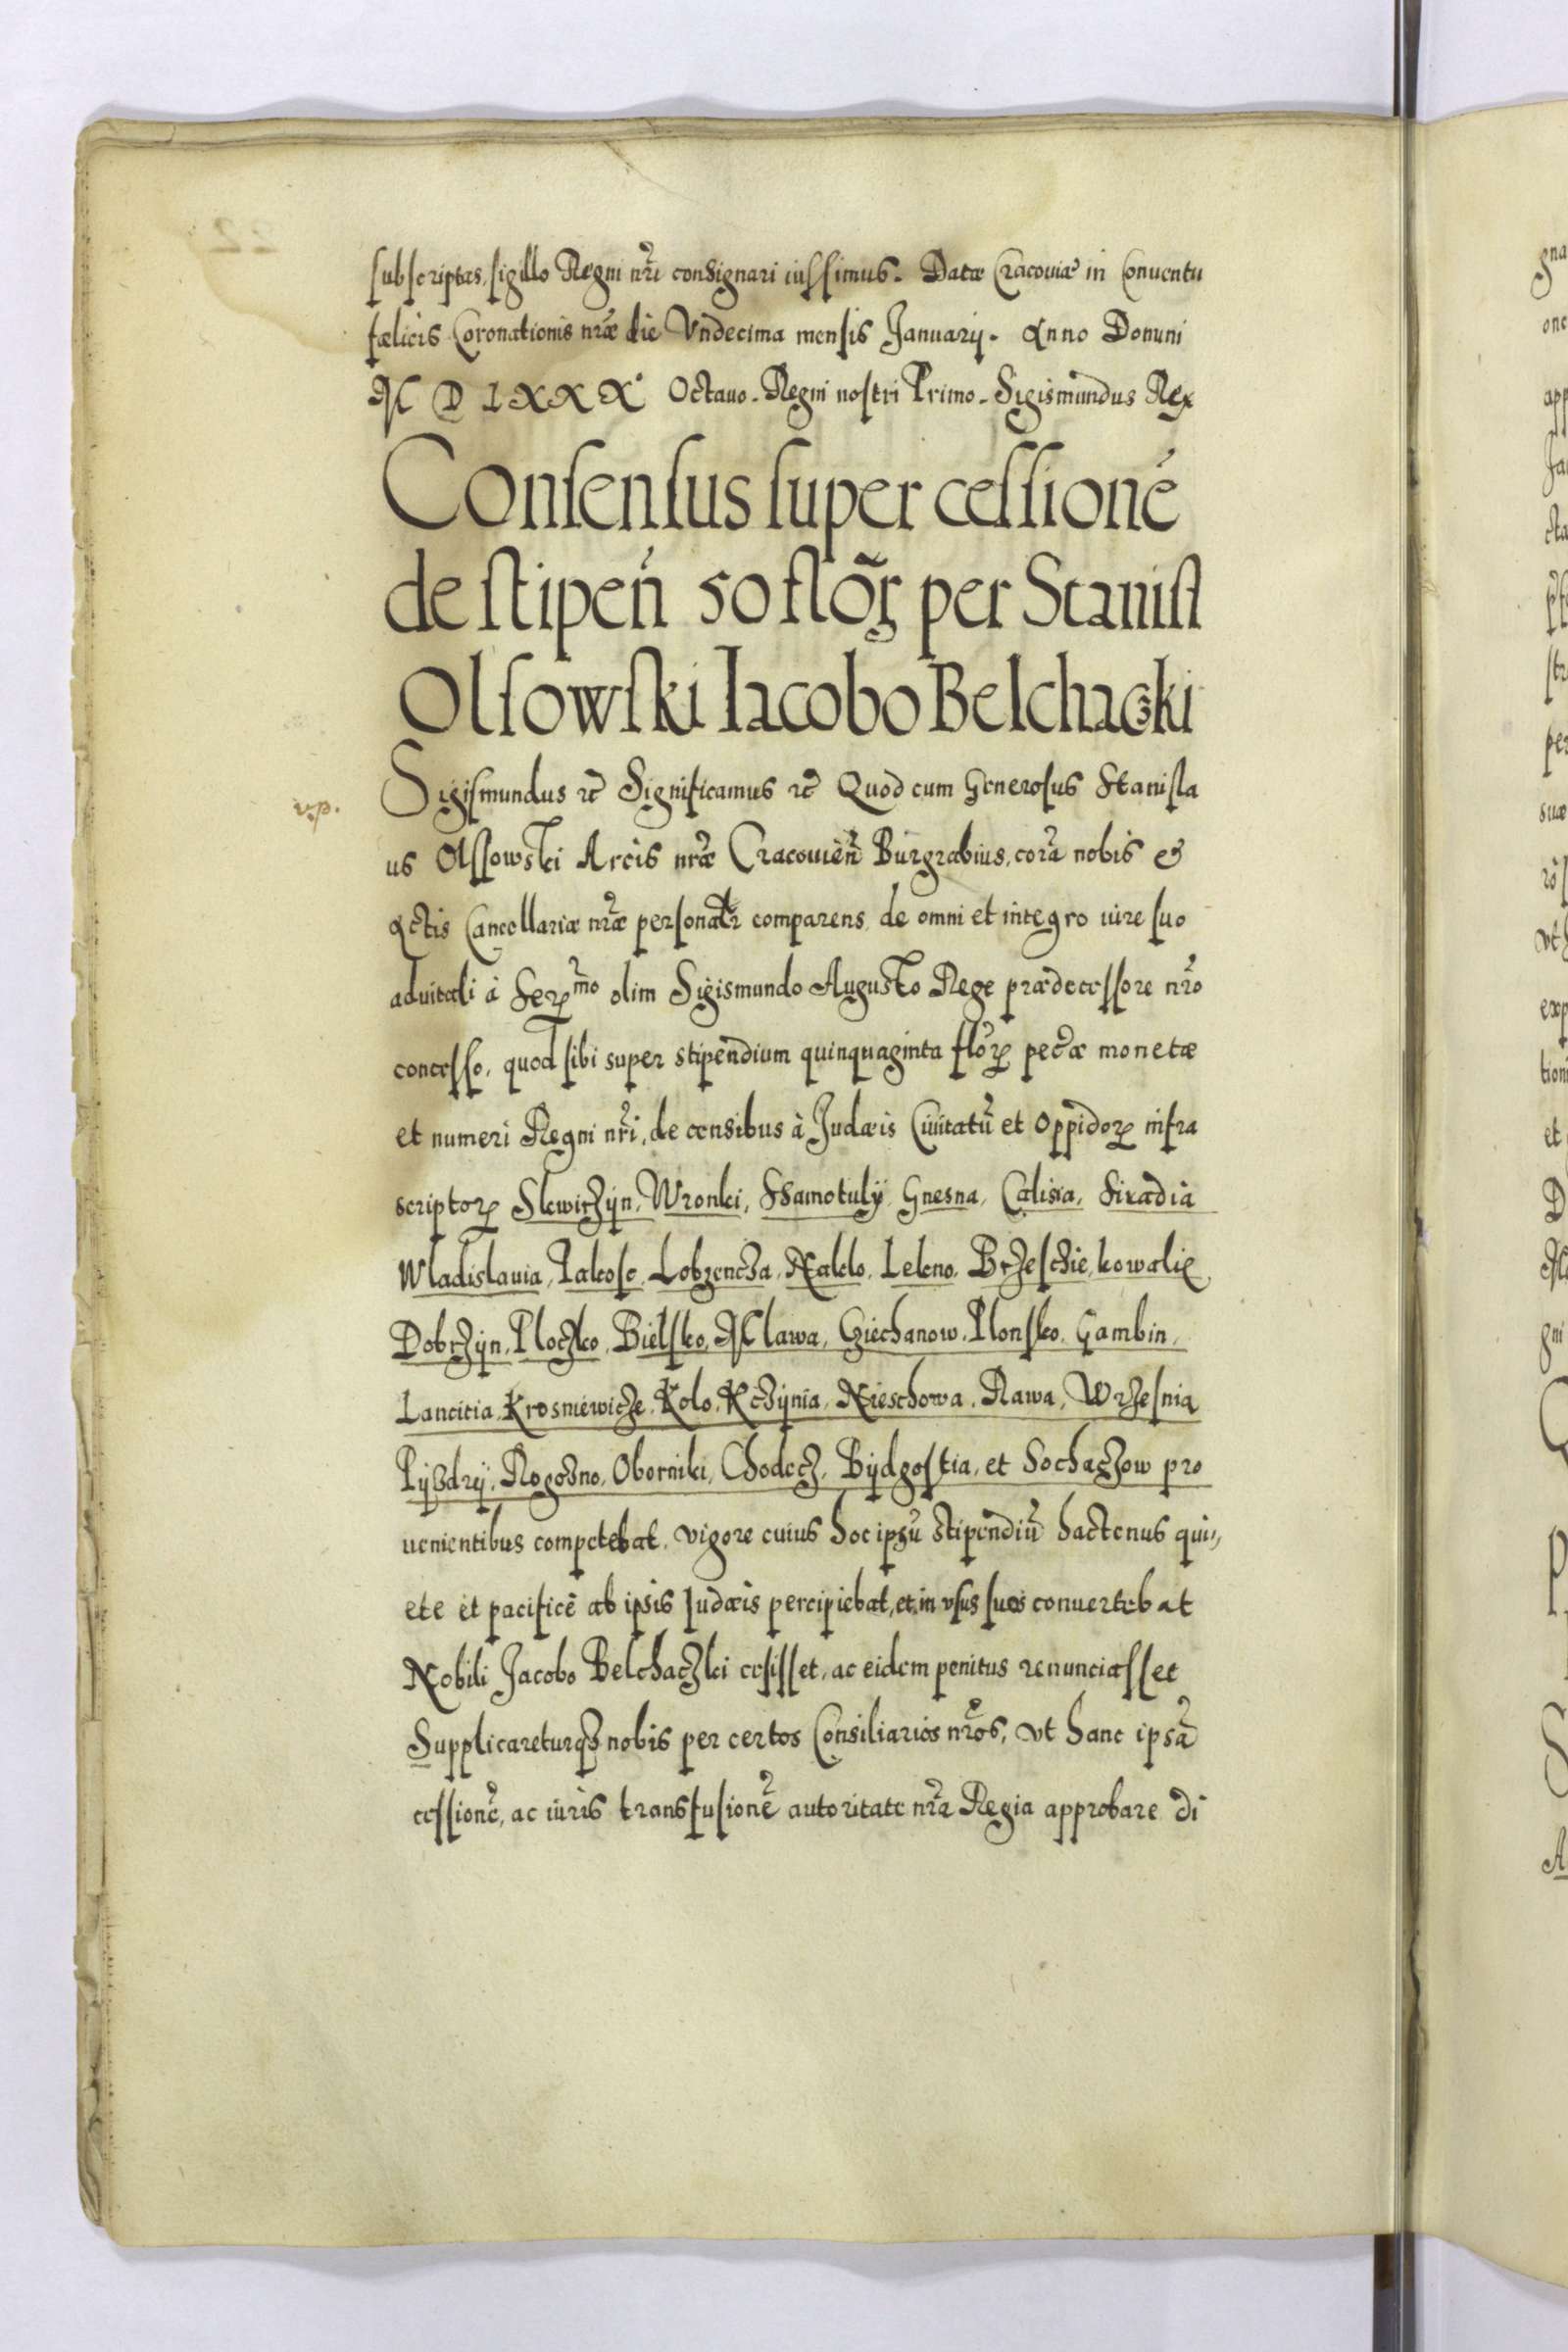 subscriptas, sigillo Regni nr̃i consignari iussimus. Datæ Cracoviæ in Conuentu
fælicis Coronationis nr̃æ die Vndecima mensis Januarij. Anno Domini
M D LXXX° Octauo. Regni nostri Primo. Sigismundus Rex
Consensus super cessionẽ
de stipeñ 50 flõꝝ per Stanisl
Olsowski Iacobo Belchaczki
v.p.
Sigismundus ꝛc̃ Significamus ꝛc̃ Quod cum Generosus Stanisla
us Olssowski Arcis nr̃æ Cracouieñ Burgrabius, corã nobis et
Actis Cancellariæ nr̃æ personalr̃ comparens, de omni et integro iure suo
aduitali à Serꝫmo olim Sigismundo Augusto Rege prædecessore nr̃o
concesso, quod sibi super stipendium quinquaginta flõꝝ pec̃æ monetæ
et numeri Regni nr̃i, de censibus à Judæis Ciuitatũ et Oppidoꝝ infra
scriptoꝝ Skwirzijn, Wronki, Szamotulÿ, Gnesna, Calisia, Siradia
Wladislauia, Pakosc, Lobzencza, Naklo, Lekno, Brzeschie, kowalie
Dobrzijn, Ploczko, Bielsko, Mlawa, Cziechanow, Plonsko, Gambin,
Lancicia, Krosniewicze, Kolo, Kczijnia, Nieschowa, Rawa, Wrzesnia
Pijzdrij, Rogozno, Oborniki, Chodecz, Bijdgostia, et Sochaczow pro
uenientibus competebat. vigore cuius hoc ipsũ stipendiũ hactenus qui„
ete et pacificè ab ipsis Iudæis percipiebat, et in vsus suos conuertebat
Nobili Jacobo Belchaczki cesisset, ac eidem penitus renunciasset
Supplicareturqꝫ nobis per certos Consiliarios nr̃os, vt hanc ipsã
cessionẽ, ac iuris transfusionẽ autoritate nr̃a Regia approbare di